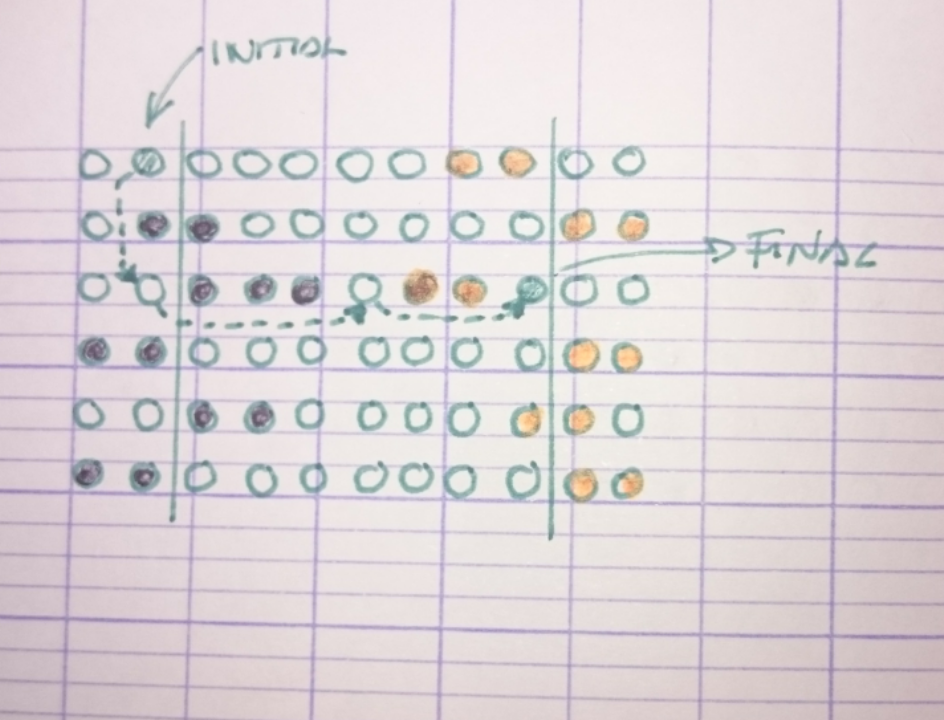 INITIAL
FINAL